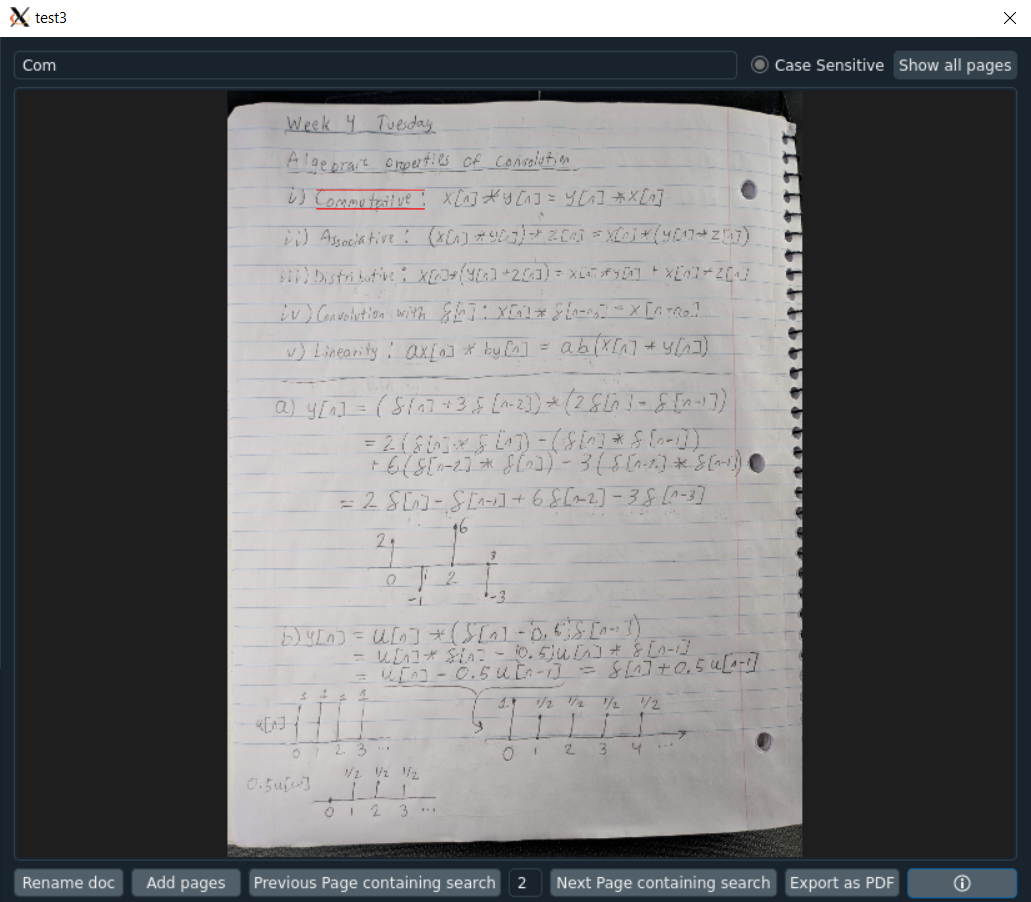 test3
Com
Case Sensitive
Show all pages
Week 4 Tuesday
Algebraic properties of Convolution
i) Commutative: x[n] * y[n] = y[n] * x[n]
ii) Associative: (x[n] * y[n]) * z[n] = x[n] * (y[n] * z[n])
iii) Distributive: x[n] * (y[n] + z[n]) = x[n] * y[n] + x[n] * z[n]
iv) Convolution with δ[n]: x[n] * δ[n-n₀] = x[n-n₀]
v) Linearity: ax[n] * by[n] = ab(x[n] * y[n])
a) y[n] = (δ[n] + 3δ[n-2]) * (2δ[n] - δ[n-1])
= 2(δ[n] * δ[n]) - (δ[n] * δ[n-1])
+ 6(δ[n-2] * δ[n]) - 3(δ[n-2] * δ[n-1])
= 2δ[n] - δ[n-1] + 6δ[n-2] - 3δ[n-3]
2 6
0 1 2 3
-1 -3
b) y[n] = u[n] * (δ[n] - (0.5)δ[n-1])
= u[n] * δ[n] - (0.5)u[n] * δ[n-1]
= u[n] - 0.5u[n-1] = δ[n] + 0.5u[n-1]
u[n] 1 1 1 1
0 1 2 3 ...
1 1/2 1/2 1/2 1/2
0 1 2 3 4 ...
0.5u[n-1] 1/2 1/2 1/2
0 1 2 3 ...
Rename doc
Add pages
Previous Page containing search
2
Next Page containing search
Export as PDF